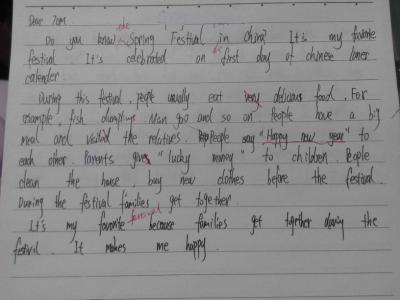 Dear Tom
Do you know the Spring Festival in china? It's my favorite
festival It's celebrated on the first day of chinese luner
calender.
During this festival, people usually eat very delicious food. For
example, fish dumplings Nian gao and so on People have a big
meal and visited the relatives. People say "Happy new year" to
each other. Parents give "lucky money" to children. People
clean the house, buy new clothes before the festival.
During the festival families get together.
It's my favorite festival because families get together during the
festival. It makes me happy.